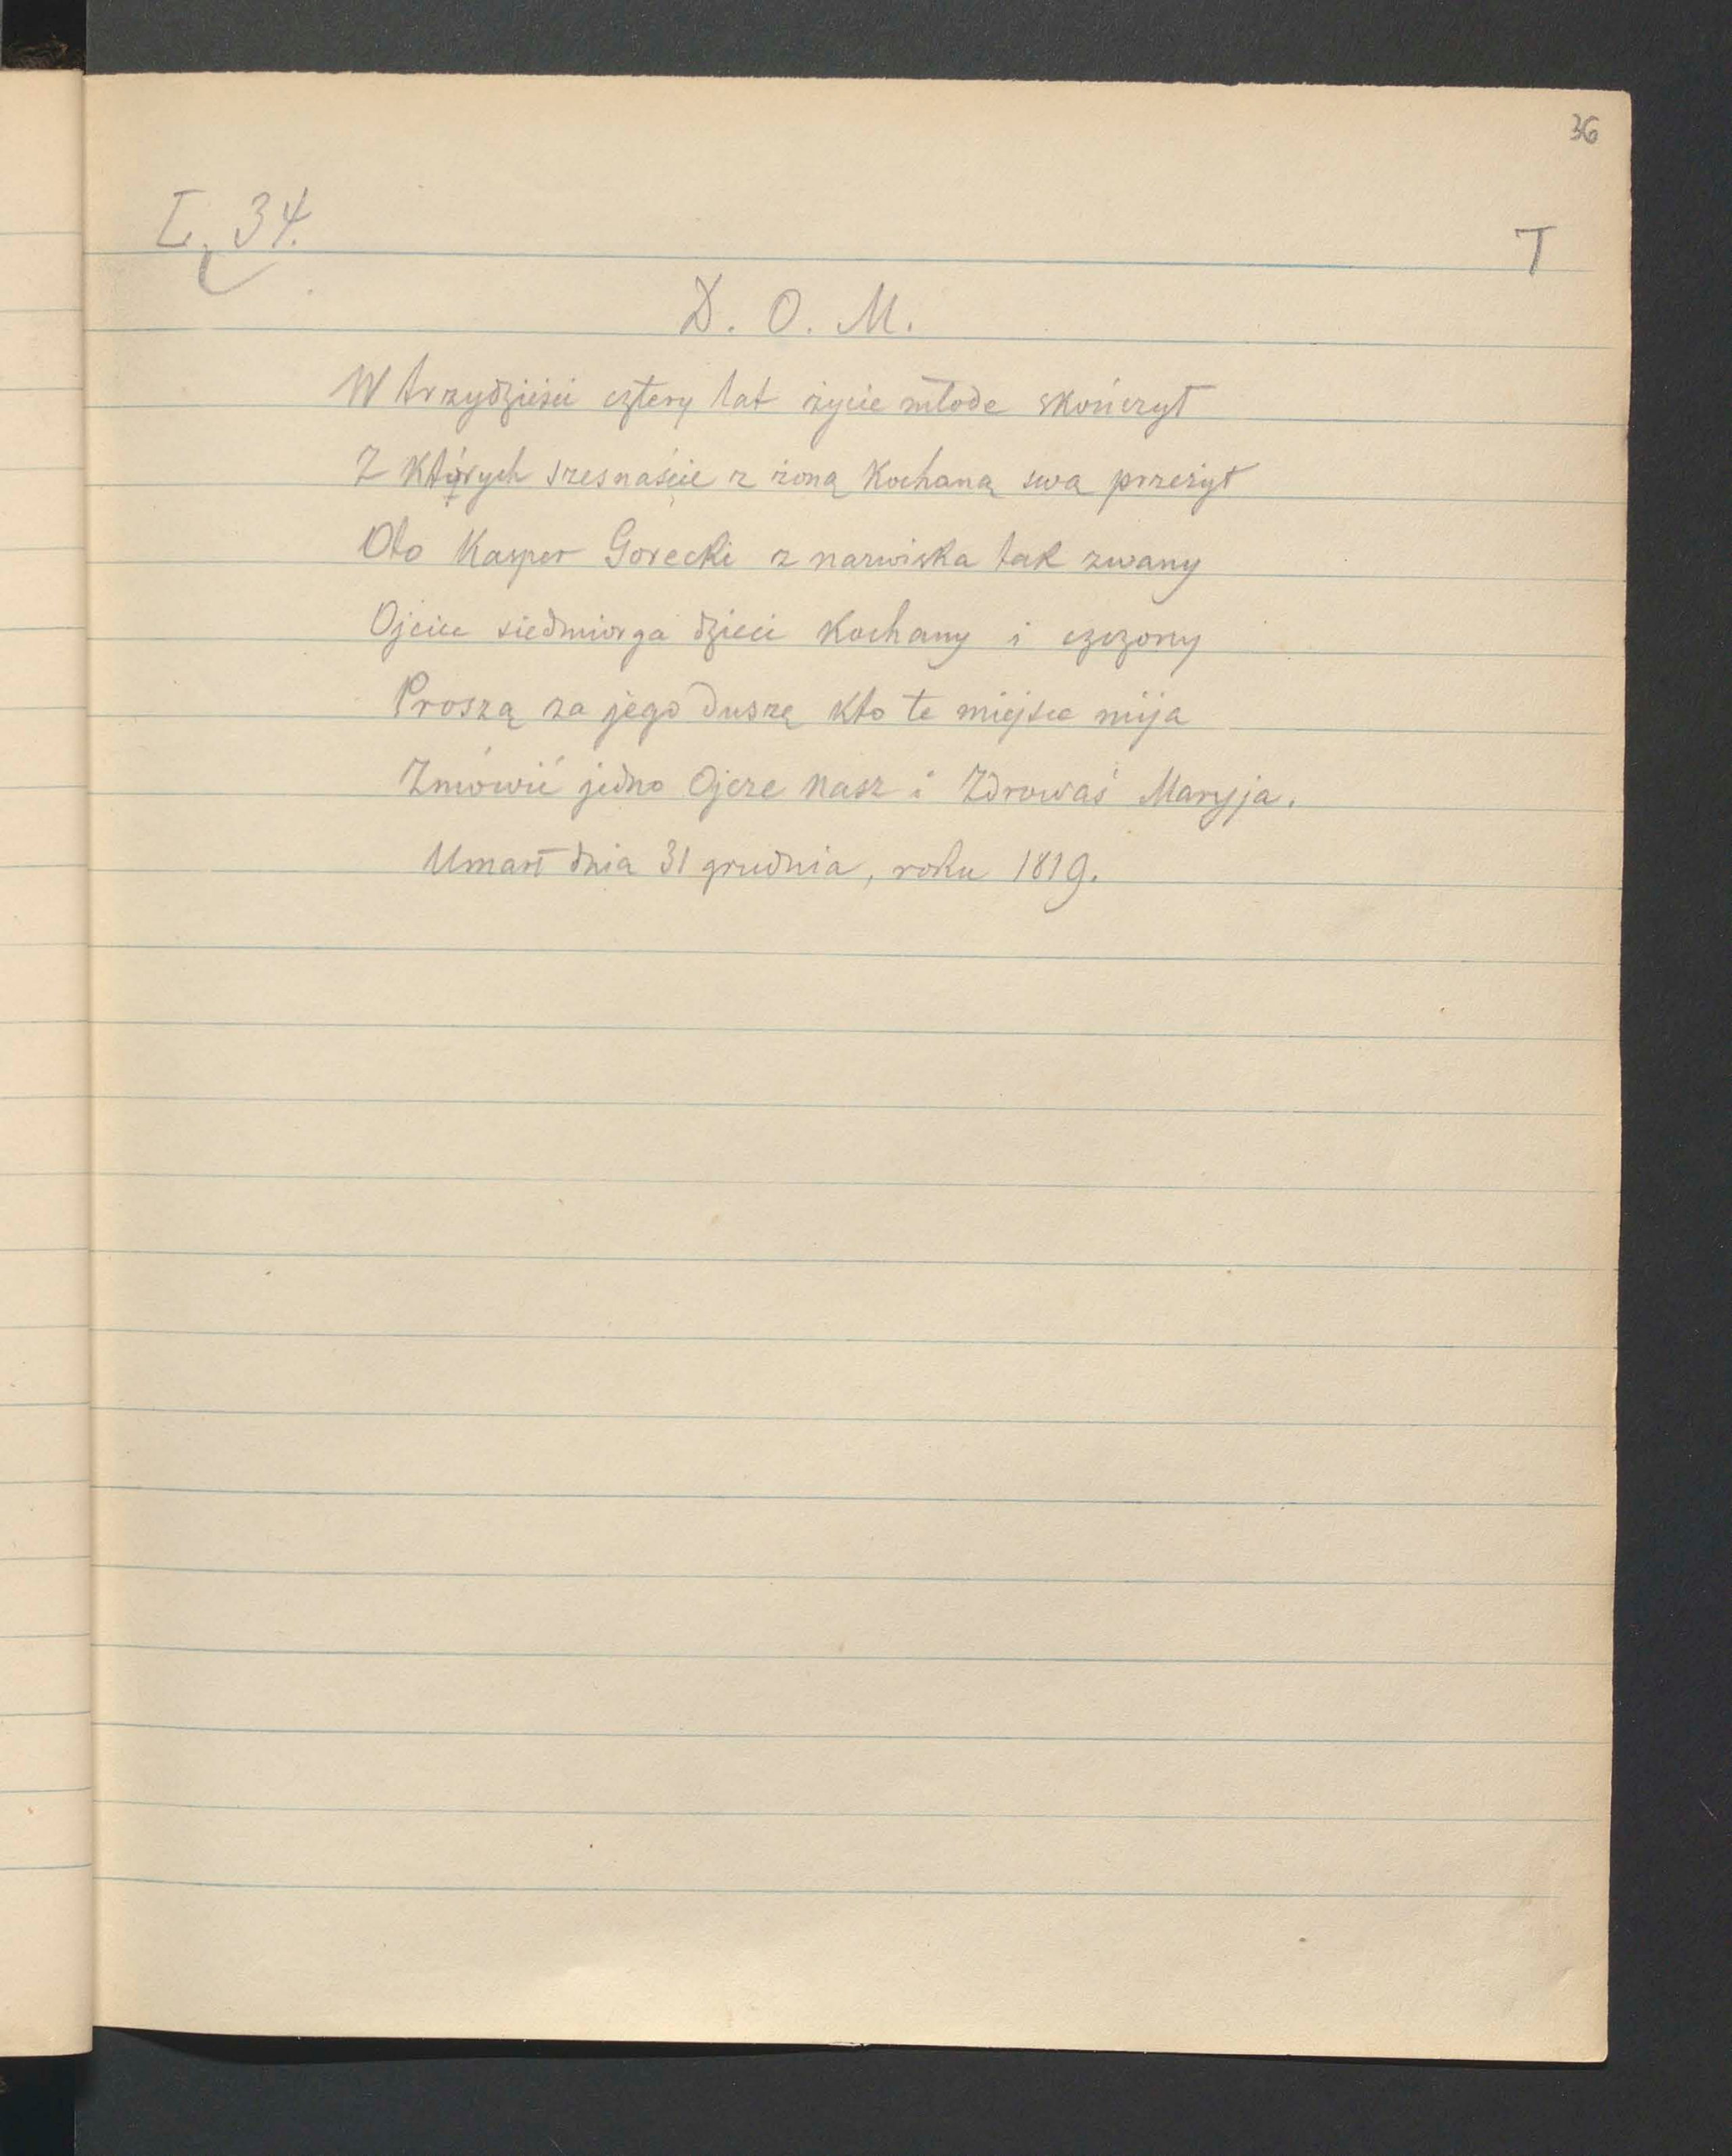 36
L. 34.
T
D. O. M.
W trzydzieści cztery lat życie młode skończył
Z których szesnaście z żoną Kochaną swą przeżył
Oto Kasper Gorecki z nazwiska tak zwany
Ojciec siedmiorga dzieci Kochany i czczony
Proszą za jego duszę kto te miejsce mija
Zmówić jedno Ojcze nasz i Zdrowaś Maryja.
Umarł dnia 31 grudnia, roku 1819.